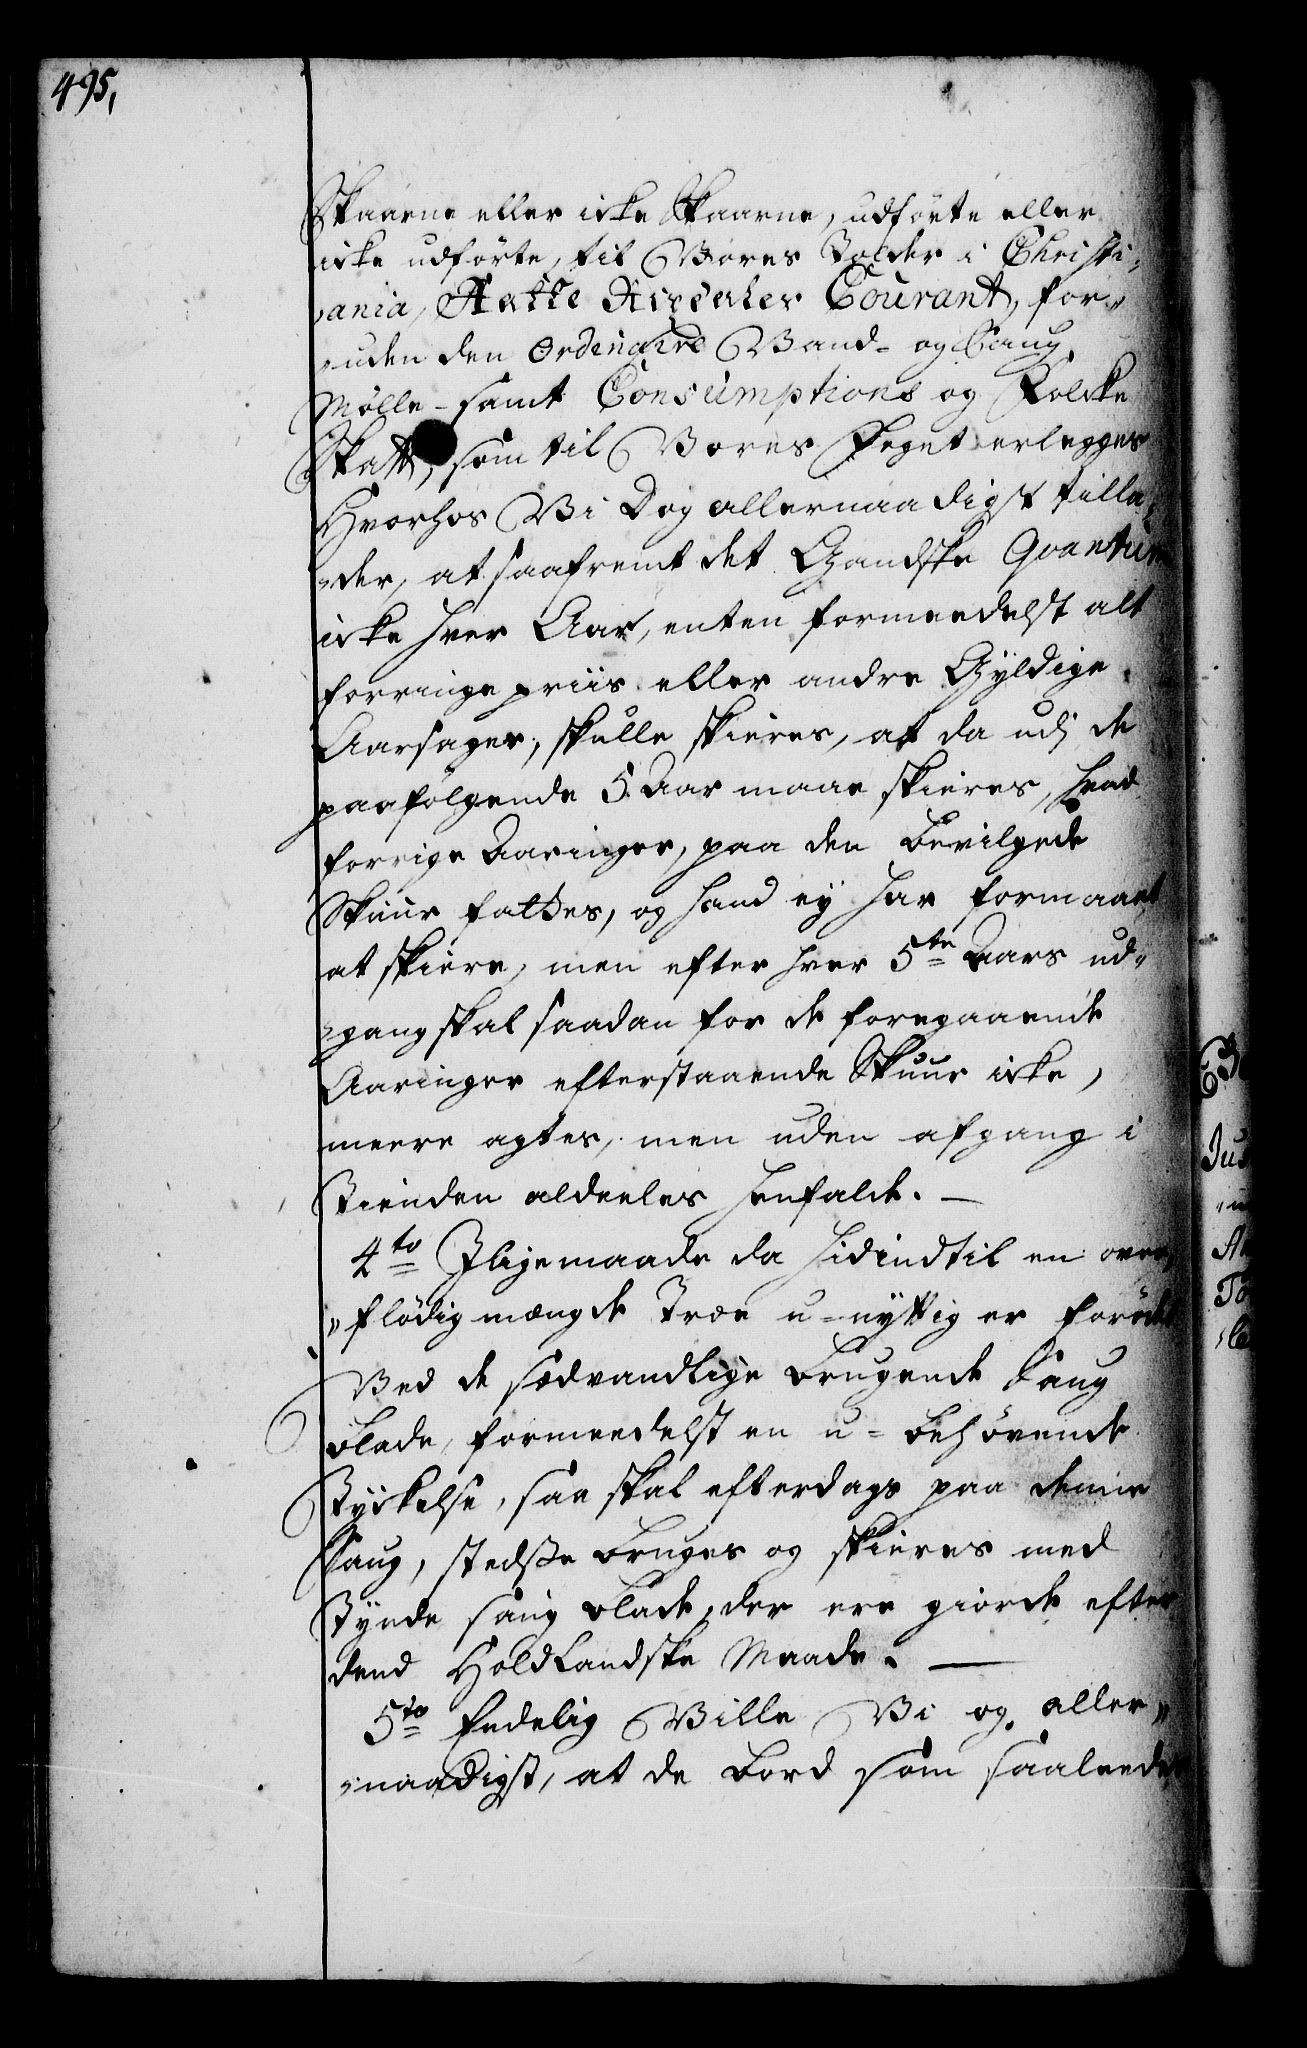 495,
Skaarne eller icke Skaarne, udförte eller
icke udförte, til Vores Tolder i Christi„
„ania, Aatte Rixdaler Courant, for„
„uden den Ordinaire Vand- og Saug
Mølle- samt Consumptions og Folcke
Skatt, som til Vores Foget erlegges
Hvorhos Vi Dog allernaadigst tilla„
„der, at saafremt det Gandske Qvantum
icke hver Aar, enten formeedelst alt
forringe priis eller andre Gyldige
Aarsager, skulle skieres, at da udj de
paafølgende 5 Aar maae skieres, hvad
forrige Aaringer, paa den bevilgede
Skuur fattes, og hand ey har formaaet
at skiere, men efter hver 5te Aars ud„
„gang skal saadan for de foregaaende
Aaringer efterstaaende Skuur icke,
meere agtes, men uden afgang i
Tienden aldeeles henfalde. —
4to Jligemaade da hidindtil en over„
„flödig mængde Træe u-nyttig er forödt
Ved de sædvandlige brugende Saug
blade, formeedelst en u-behövende
Tyckelse, saa skal efterdags paa denne
Saug, stedse bruges og skieres med
Tynde saug blade, der ere giorde efter
dend Holdlandske Maade. —
5to Endelig Ville Vi og aller„
„naadigst, at de bord som saaleedes